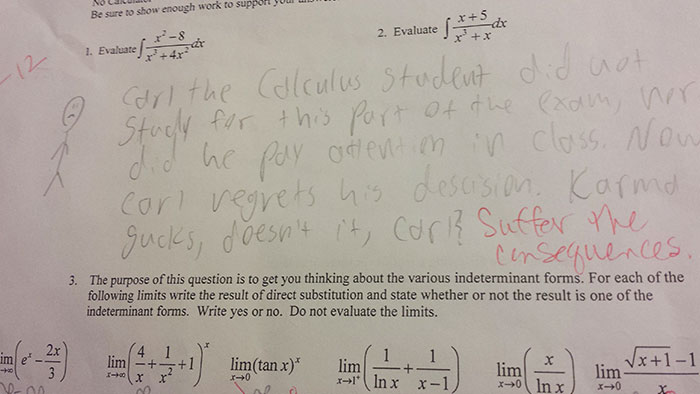 Be sure to show enough work to support your
1. Evaluate ∫ (x² – 8)/(x³ + 4x²) dx
2. Evaluate ∫ (x + 5)/(x³ + x) dx
-12
Carl the Calculus Student did not
Study for this part of the exam, nor
did he pay attention in class. Now
Carl regrets his descision. Karma
sucks, doesn't it, Carl? Suffer the
consequences.
3. The purpose of this question is to get you thinking about the various indeterminant forms. For each of the
following limits write the result of direct substitution and state whether or not the result is one of the
indeterminant forms. Write yes or no. Do not evaluate the limits.
lim x→∞ (eˣ – 2x/3) lim x→∞ (4/x + 1/x² + 1)ˣ lim x→0 (tan x)ˣ lim x→1⁺ (1/ln x + 1/(x – 1)) lim x→0 (x/ln x) lim x→0 (√(x+1) – 1)/x